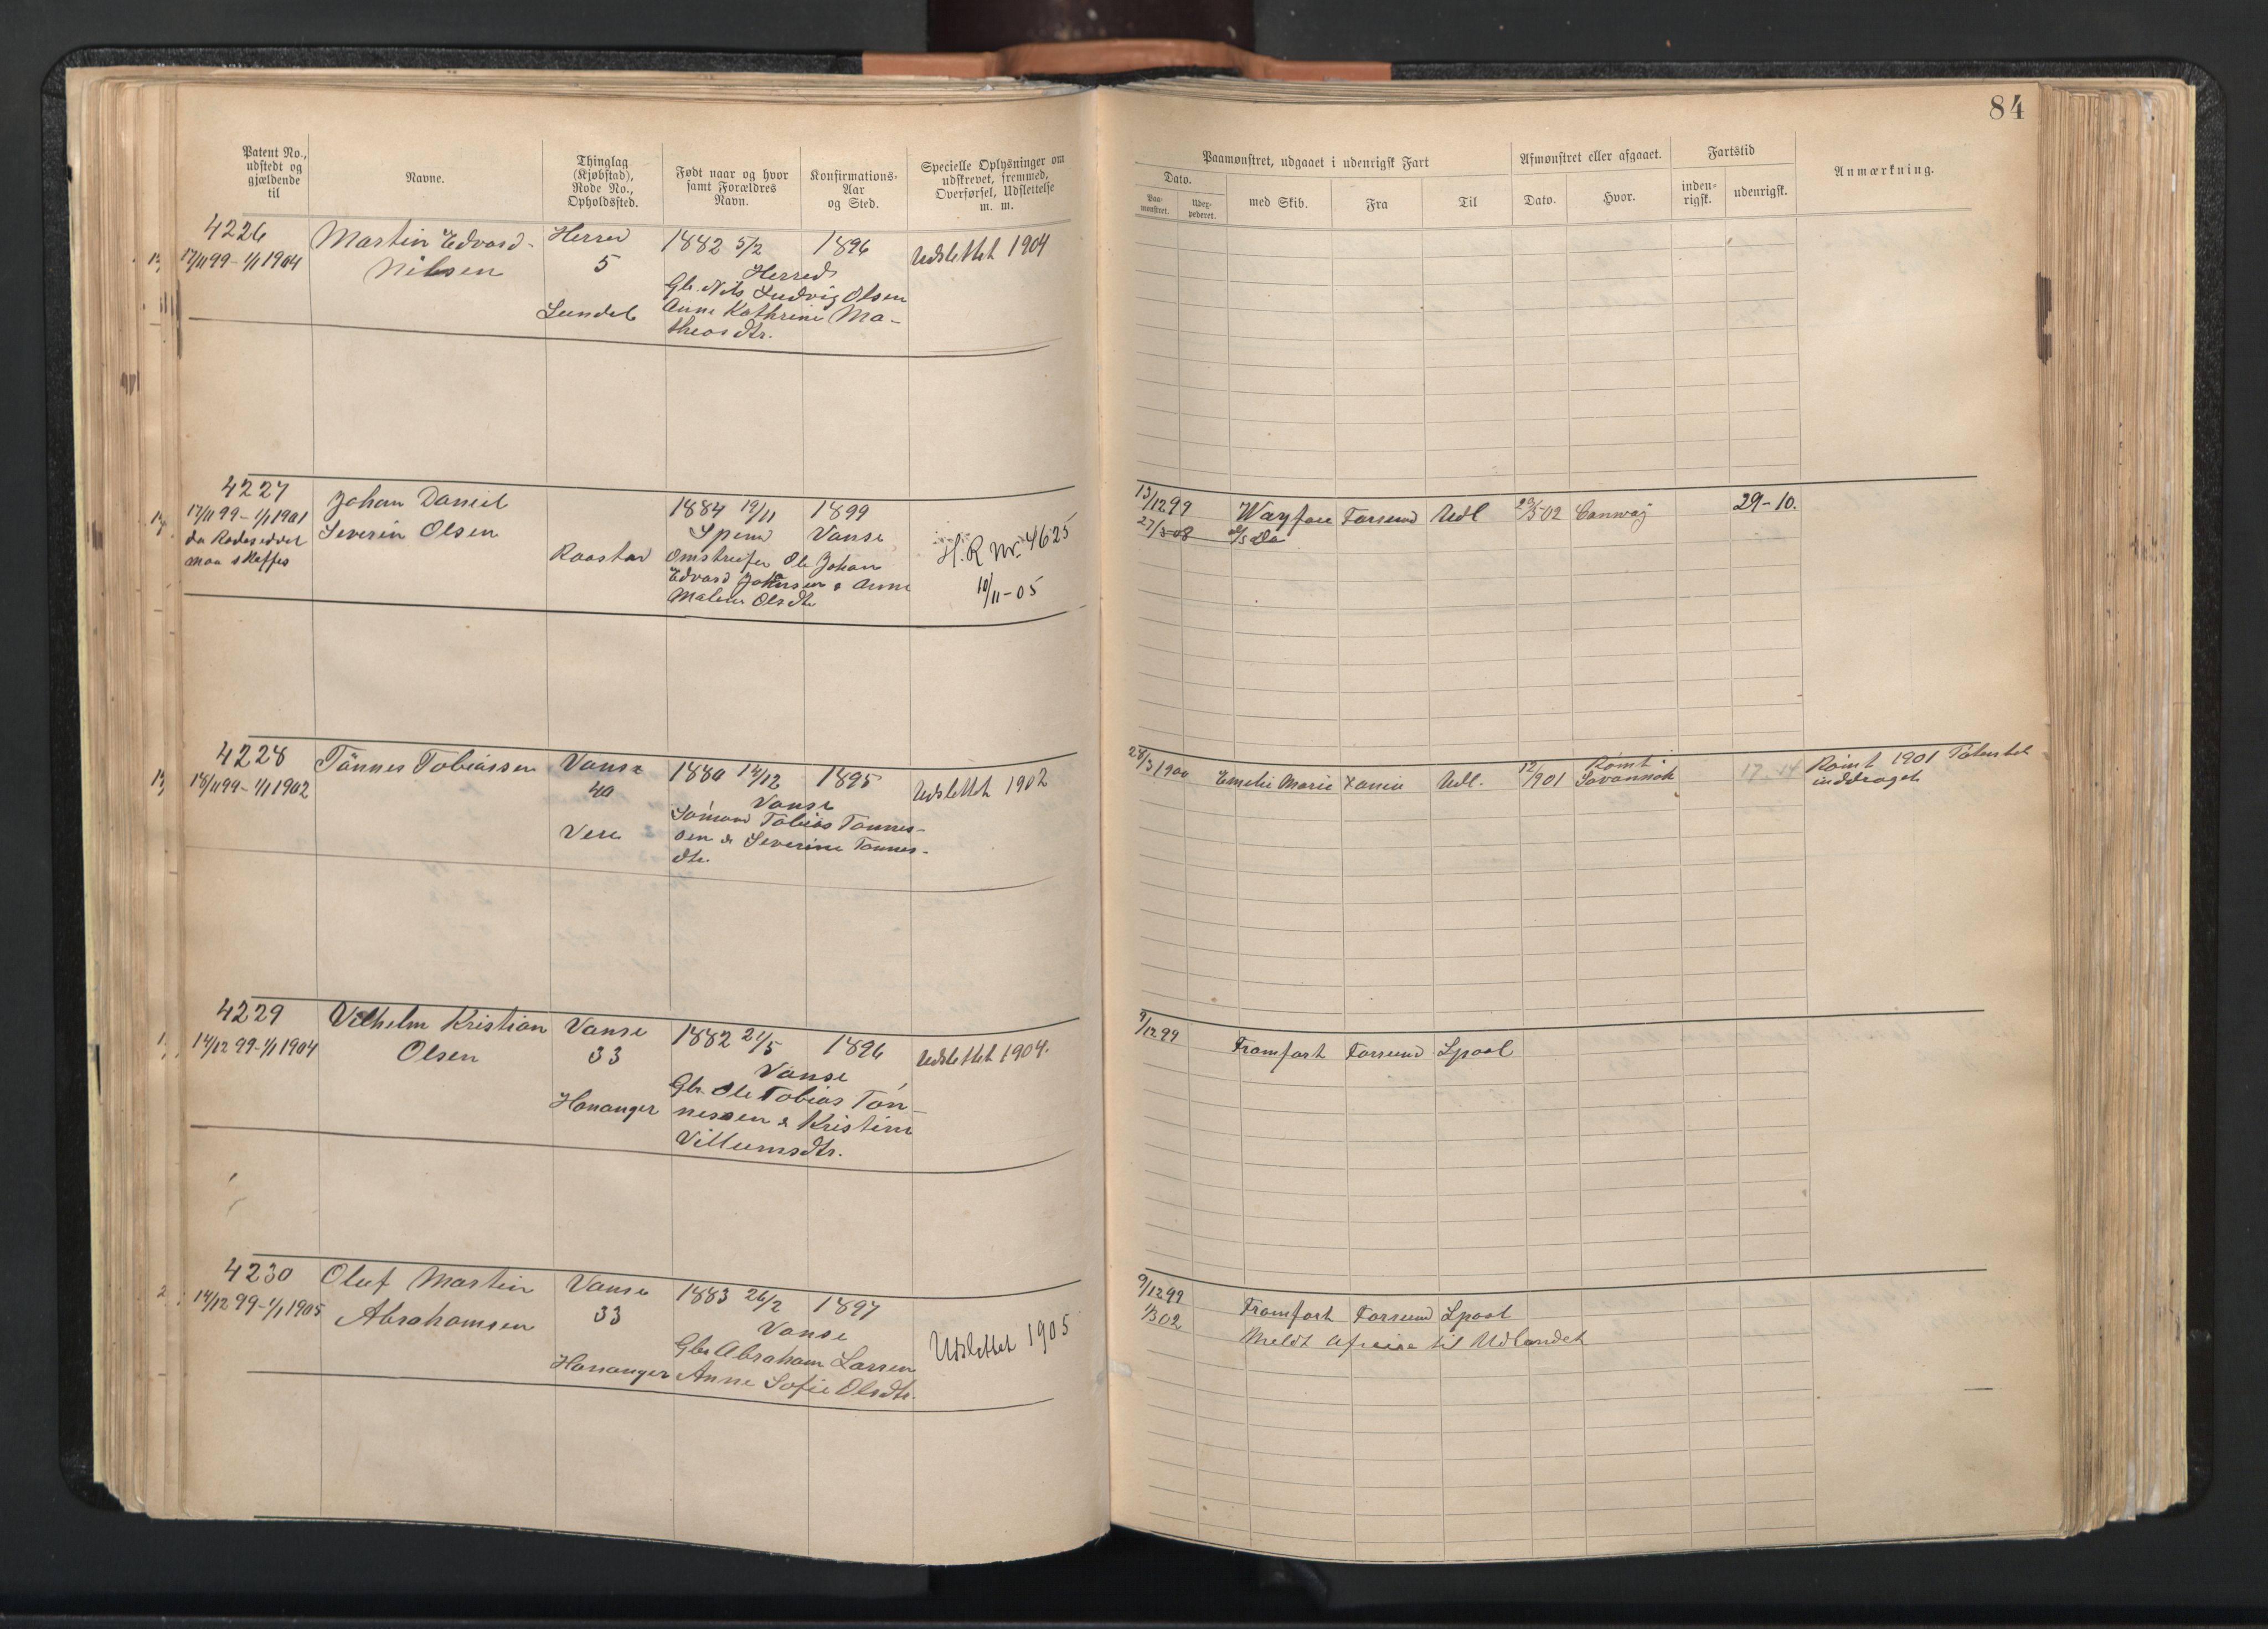 84
Patent No., udstedt og gjældende til
Navne.
Thinglag (Kjøbstad), Rode No., Opholdssted.
Født naar og hvor samt Forældres Navn.
Konfirmations-Aar og Sted.
Specielle Oplysninger om udskrevet, fremmed, Overførsel, Udslettelse m. m.
Paamønstret, udgaaet i udenrigsk Fart
Afmønstret eller afgaaet.
Fartstid
Anmærkning.
Dato.
Paa-mønstret.
med Skib.
Fra
Til
Dato.
Hvor.
inden-rigsk.
udenrigsk.
4226
17/11 99 - 1/1 1904
Martin Edvard
Nilsen
Herred
5
Lunde
1882 5/2
1896
Herred
Gb. Nils Ludvig Olsen
Anne Kathrine Ma-
theasdtr.
Udslettet 1904
4227
17/11 99 - 1/1 1901
da Rodeseddel
maa skaffes
Johan Daniel
Severin Olsen
Raastad
1884 19/11
1899
Spind
Vanse
Omstreifer Ole Johan
Edvard & Anne
Malene Olsdtr
H. R Nr. 4625
10/11-05
13/12 99
Farsund
Udl
29/5 02
Conway
29-10.
4228
18/11 99 - 1/1 1902
Tönnes Tobiassen
Vanse
40
Vere
1880 14/12
1895
Vanse
Sömand Tobias Tönnes-
sen & Severine Tönnes-
dtr.
Udslettet 1902
28/3 1900
Emelie Marie
Udl.
12/ 901
Römt i
Savannah
17-14
Römt 1901
inddraget
4229
14/12 99 - 1/1 1904
Vilhelm Kristian
Olsen
Vanse
33
Hananger
1882 21/5
1896
Vanse
Gbr. Ole Tobias Tön-
nessen & Kristine
Villumsdtr.
Udslettet 1904.
9/12 99
Framfart
Farsund
Lpool
4230
14/12 99 - 1/1 1905
Oluf Martin
Abrahamsen
Vanse
33
Hananger
1883 26/2
1897
Vanse
Gbr Abraham Larsen
Anne Sofie Olsdtr.
Udslettet 1905
9/12 99
Framfart
Farsund
Lpool
1/3 02
Meldt Afreise til Udlandet